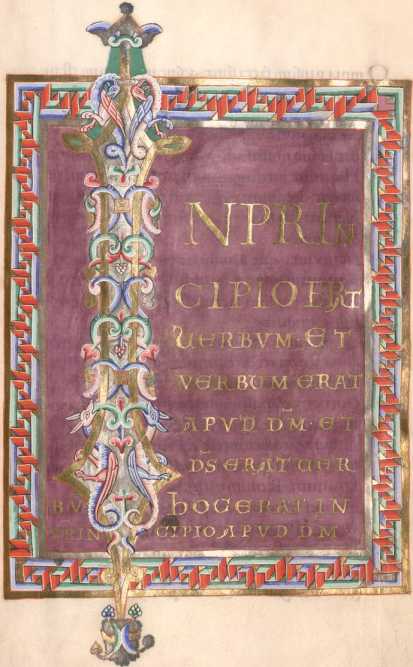 IN PRIN
CIPIO ERAT
UERBVM · ET
VERBUM ERAT
APVD DM̄ · ET
DS̄ ERAT UER
BV̄ hOC ERAT IN
PRINCIPIO APVD DM̄